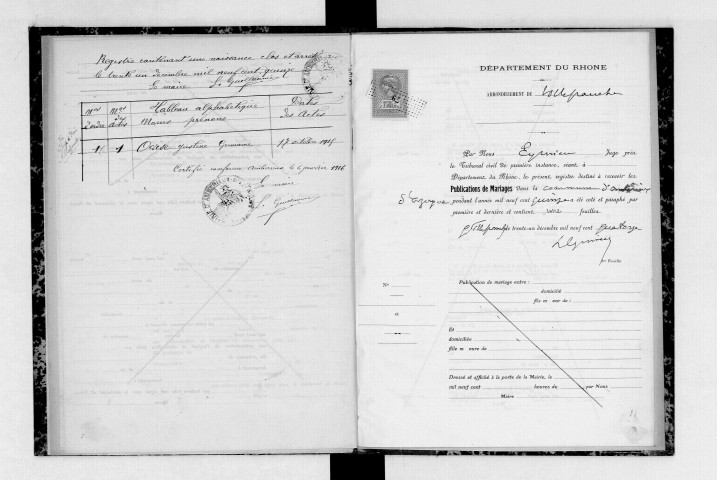 Registre contenant une naissance clos et arrêté
le trente un décembre mil neuf cent quinze
Le maire
Nos d'ordre
Nos des actes
Tableau alphabétique
Noms prénoms
Dates
des Actes
1 1 Justine Germaine 17 octobre 1915
Certifié conforme Ambérieux le 6 janvier 1916
Le maire
DÉPARTEMENT DU RHONE
ARRONDISSEMENT DE Villefranche
Par Nous Juge près
le Tribunal civil de première instance, séant à
Département du Rhône, le présent registre destiné à recevoir les
Publications de Mariages dans la commune d'Ambérieux
pendant l'année mil neuf cent quinze a été coté et paraphé par
première et dernière et contient feuilles.
Villefranche le trente-un décembre mil neuf cent quatorze
1er Feuille
No
Publication de mariage entre :
domicilié
fils m eur de :
et
Et
domiciliée
fille m eure de
Dressé et affiché à la porte de la Mairie, le
mil neuf cent heures du par Nous
Maire